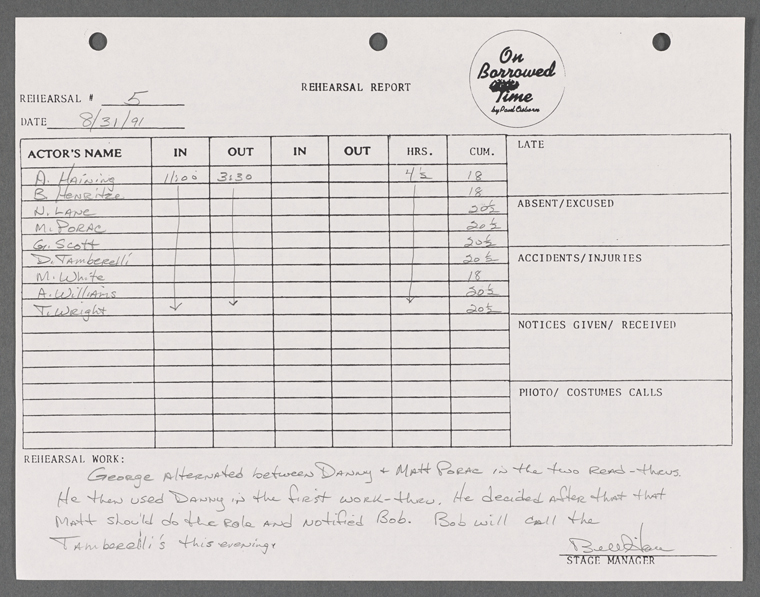 On
Borrowed
Time
by Paul Osborn
REHEARSAL REPORT
REHEARSAL # 5
DATE 8/31/91
ACTOR'S NAME IN OUT IN OUT HRS. CUM.
A. Haining 11:00 3:30 4½ 18
B. Henritze 18
N. Lane 20½
M. Porac 20½
G. Scott 20½
D. Tamberelli 20½
M. White 18
A. Williams 20½
T. Wright 20½
LATE
ABSENT/EXCUSED
ACCIDENTS/INJURIES
NOTICES GIVEN/ RECEIVED
PHOTO/ COSTUMES CALLS
REHEARSAL WORK:
George alternated between Danny + Matt Porac in the two read-thrus.
He then used Danny in the first work-thru. He decided after that that
Matt should do the role and notified Bob. Bob will call the
Tamberelli's this evening.
STAGE MANAGER